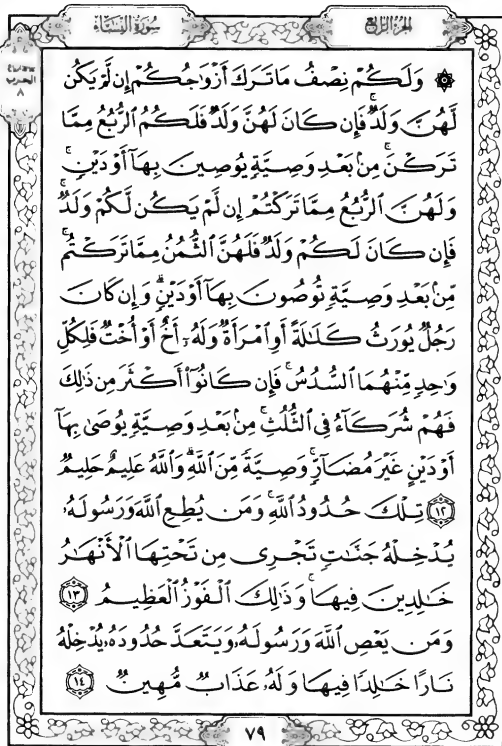 الجزء الرابع
سورة النساء
۞ وَلَكُمْ نِصْفُ مَا تَرَكَ أَزْوَٰجُكُمْ إِن لَّمْ يَكُن
لَّهُنَّ وَلَدٌ ۚ فَإِن كَانَ لَهُنَّ وَلَدٌ فَلَكُمُ ٱلرُّبُعُ مِمَّا
تَرَكْنَ ۚ مِنۢ بَعْدِ وَصِيَّةٍ يُوصِينَ بِهَآ أَوْ دَيْنٍ ۚ
وَلَهُنَّ ٱلرُّبُعُ مِمَّا تَرَكْتُمْ إِن لَّمْ يَكُن لَّكُمْ وَلَدٌ ۚ
فَإِن كَانَ لَكُمْ وَلَدٌ فَلَهُنَّ ٱلثُّمُنُ مِمَّا تَرَكْتُم ۚ
مِّنۢ بَعْدِ وَصِيَّةٍ تُوصُونَ بِهَآ أَوْ دَيْنٍ ۗ وَإِن كَانَ
رَجُلٌ يُورَثُ كَلَٰلَةً أَوِ ٱمْرَأَةٌ وَلَهُۥٓ أَخٌ أَوْ أُخْتٌ فَلِكُلِّ
وَٰحِدٍ مِّنْهُمَا ٱلسُّدُسُ ۚ فَإِن كَانُوٓا۟ أَكْثَرَ مِن ذَٰلِكَ
فَهُمْ شُرَكَآءُ فِى ٱلثُّلُثِ ۚ مِنۢ بَعْدِ وَصِيَّةٍ يُوصَىٰ بِهَآ
أَوْ دَيْنٍ غَيْرَ مُضَآرٍّ ۚ وَصِيَّةً مِّنَ ٱللَّهِ ۗ وَٱللَّهُ عَلِيمٌ حَلِيمٌ
﴿١٢﴾ تِلْكَ حُدُودُ ٱللَّهِ ۚ وَمَن يُطِعِ ٱللَّهَ وَرَسُولَهُۥ
يُدْخِلْهُ جَنَّٰتٍ تَجْرِى مِن تَحْتِهَا ٱلْأَنْهَٰرُ
خَٰلِدِينَ فِيهَا ۚ وَذَٰلِكَ ٱلْفَوْزُ ٱلْعَظِيمُ ﴿١٣﴾
وَمَن يَعْصِ ٱللَّهَ وَرَسُولَهُۥ وَيَتَعَدَّ حُدُودَهُۥ يُدْخِلْهُ
نَارًا خَٰلِدًا فِيهَا وَلَهُۥ عَذَابٌ مُّهِينٌ ﴿١٤﴾
الحزب
٨
٧٩